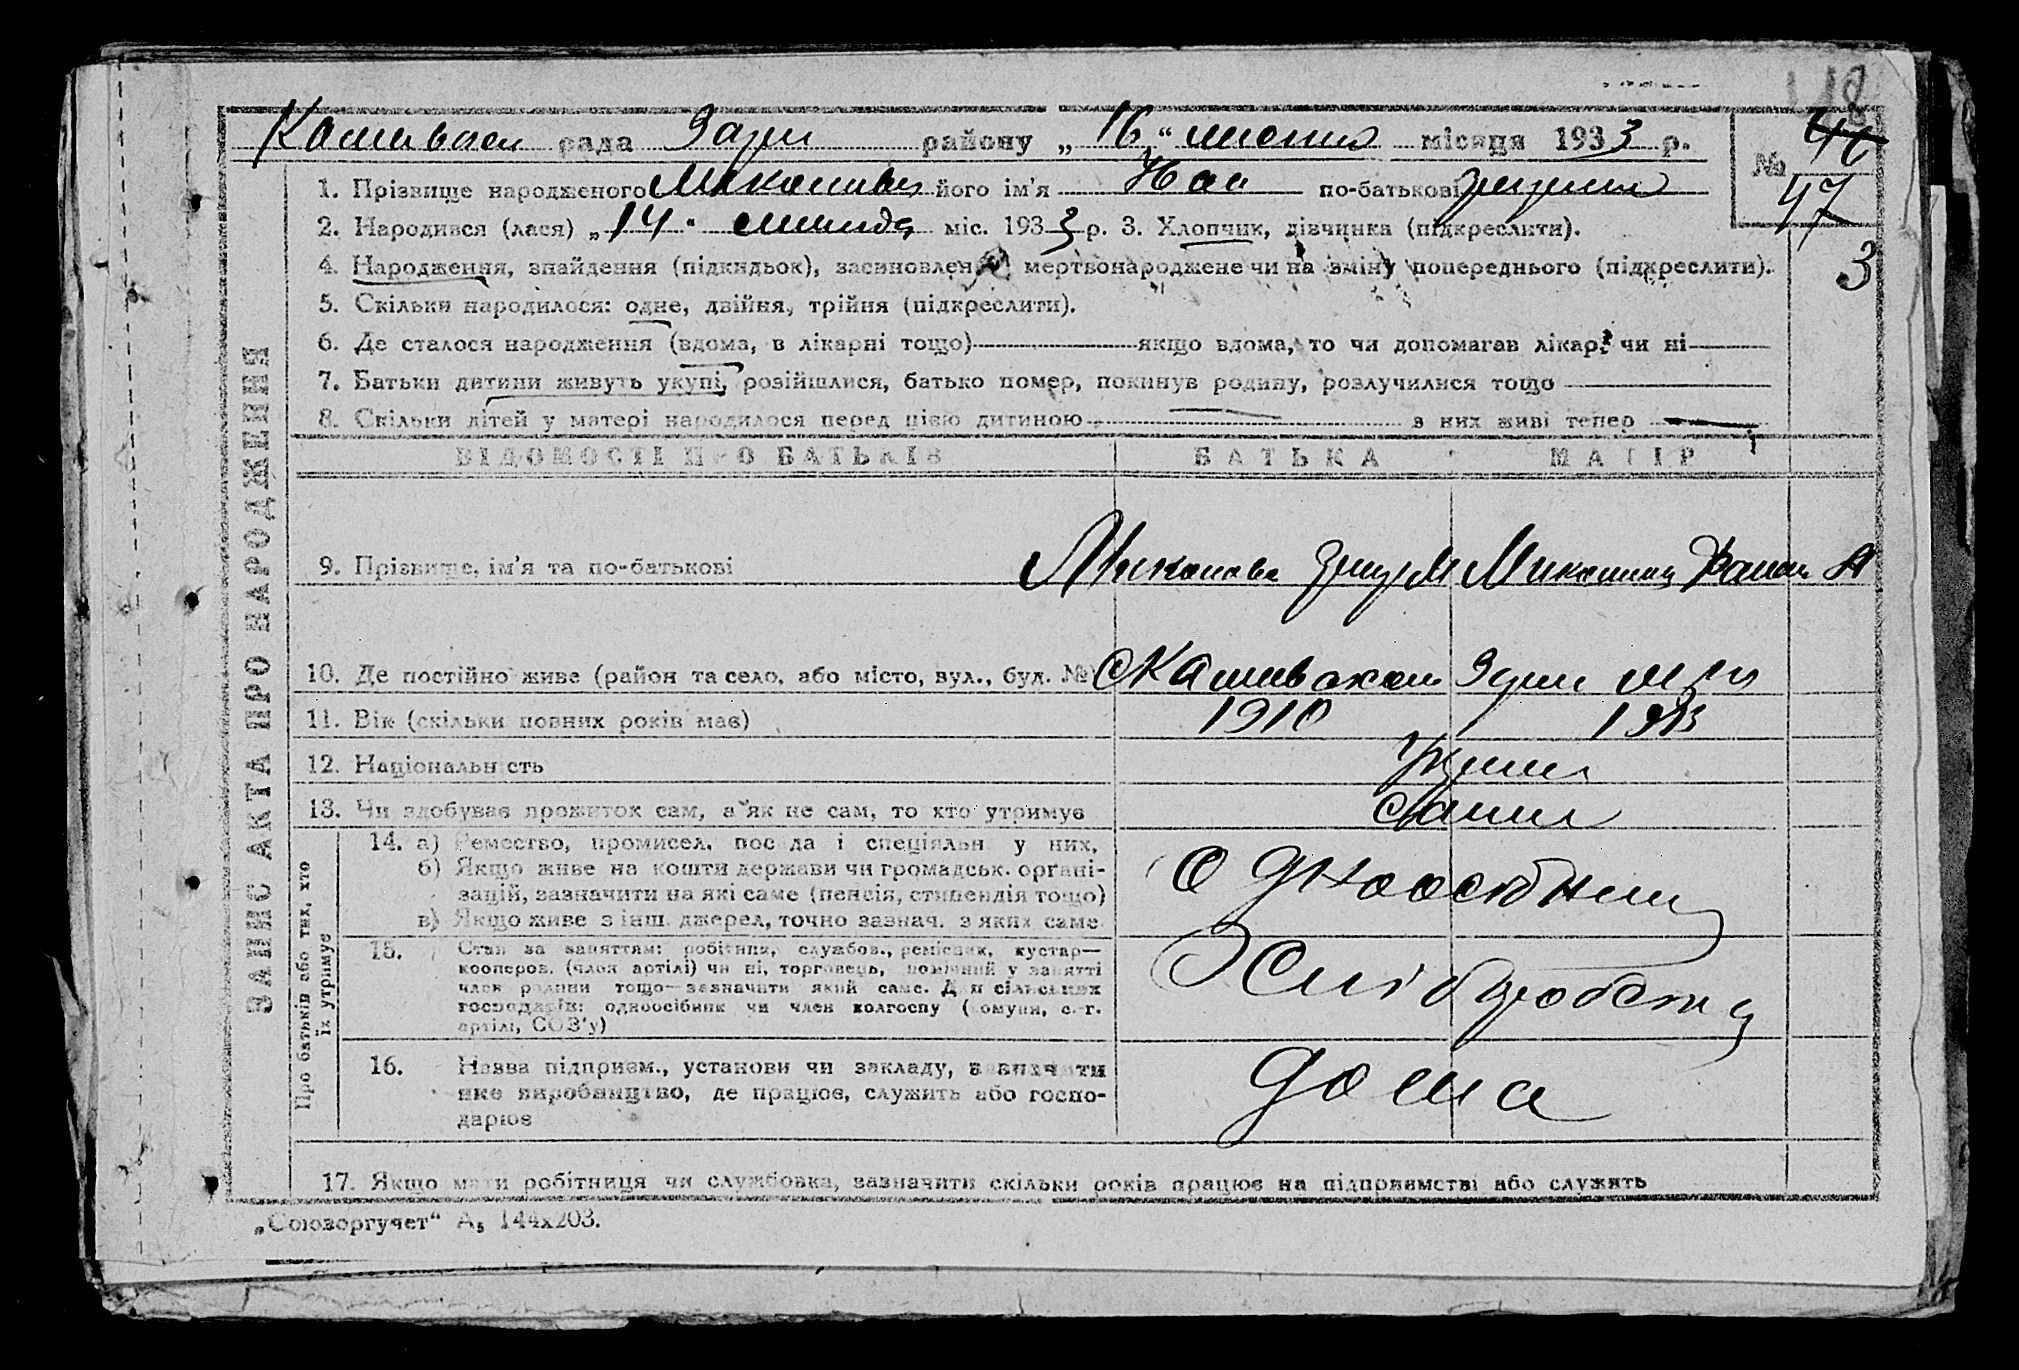 118
рада району „16“ місяця 1933 р.
№ 46
47
1. Прізвище народженого його ім'я по-батькові
2. Народився (лася) „14“ міс. 1933 р. 3. Хлопчик, дівчинка (підкреслити).
3
4. Народження, знайдення (підкидьок), засиновлен мертвонароджене чи на зміну попереднього (підкреслити).
5. Скільки народилося: одне, двійня, трійня (підкреслити).
6. Де сталося народження (вдома, в лікарні тощо) якщо вдома, то чи допомагав лікар чи ні
7. Батьки дитини живуть укупі, розійшлися, батько помер, покинув родину, розлучилися тощо
8. Скільки дітей у матері народилося перед цією дитиною з них живі тепер
ЗАПИС АКТА ПРО НАРОДЖЕННЯ
ВІДОМОСТІ ПРО БАТЬКІВ БАТЬКА МАТІР
9. Прізвище, ім'я та по-батькові
10. Де постійно живе (район та село, або місто, вул., буд. №)
11. Вік (скільки повних років має) 1910 1913
12. Національність
13. Чи здобуває прожиток сам, а як не сам, то хто утримує
Про батьків або тих, хто
їх утримує
14. а) Ремество, промисел, посада і спеціяльн у них,
б) Якщо живе на кошти держави чи громадськ. органі-
зацій, зазначити на які саме (пенсія, стипендія тощо)
в) Якщо живе з інш. джерел, точно зазнач. з яких саме
Одноосібниц
15. Стан за заняттям: робітник, службов., ремісник, кустар—
кооперов. (член артілі) чи ні, торговець, помічний у занятті
член родини тощо—зазначити який саме. Для сільських
господарів: одноосібник чи член колгоспу (комуни, с.-г.
артілі, СОЗ'у)
Хліборобство
16. Назва підприєм., установи чи закладу, зазначити
яке виробництво, де працює, служить або госпо-
дарює
дома
17. Якщо мати робітниця чи службовка, зазначити скільки років працює на підприємстві або служить
„Союзоргучет“ А₅ 144х203.